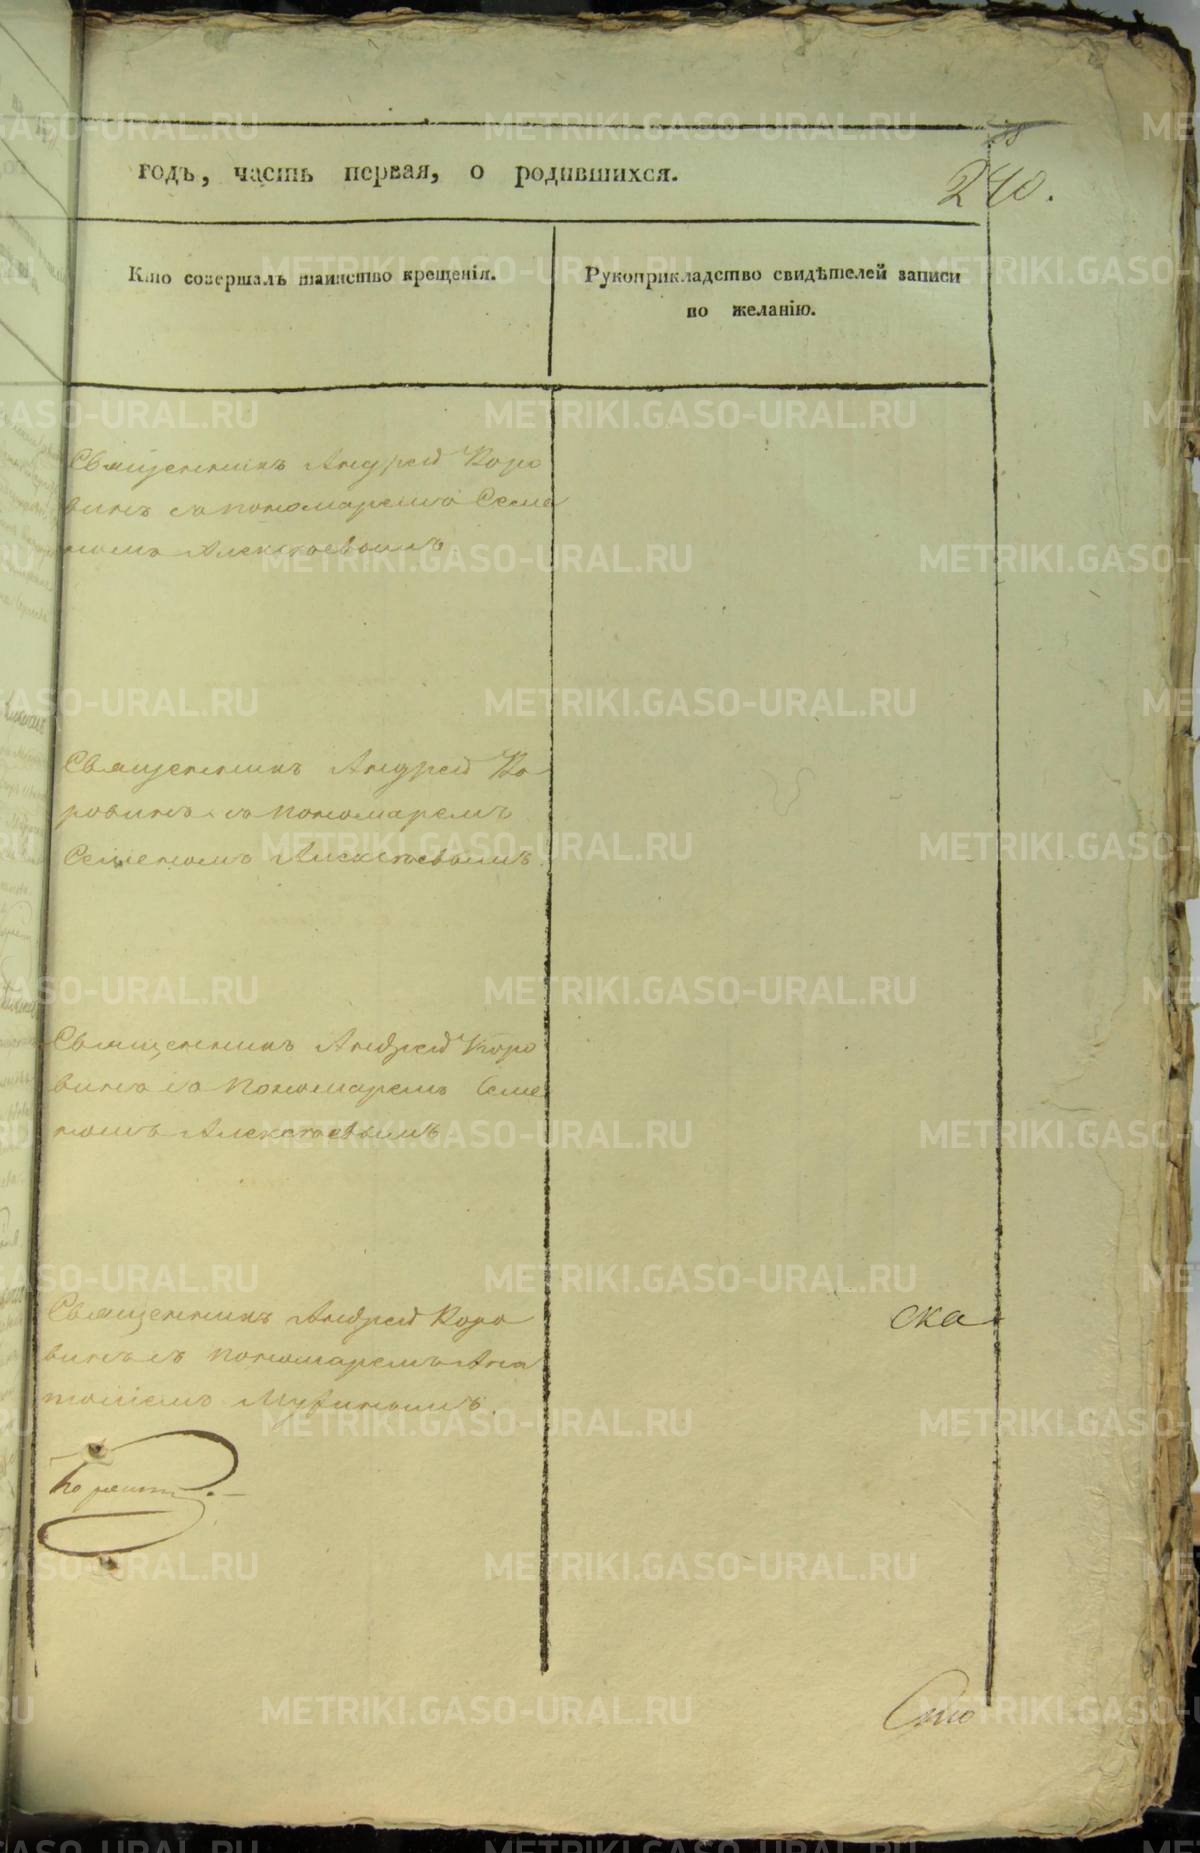 годъ, часть первая, о родившихся.
240.
Кто совершалъ таинство крещенія.
Рукоприкладство свидѣтелей записи
по желанію.
Священникъ Андрей Коро
винъ съ пономаремъ Семе
номъ Алексѣевымъ.
Священникъ Андрей Ко-
ровинъ съ пономаремъ
Семеномъ Алексѣевымъ.
Священникъ Андрей Коро
винъ съ пономаремъ Семе
номъ Алексѣевымъ
Священникъ Андрей Коро
винъ съ пономаремъ Ана
толіемъ
ска
METRIKI.GASO-URAL.RU